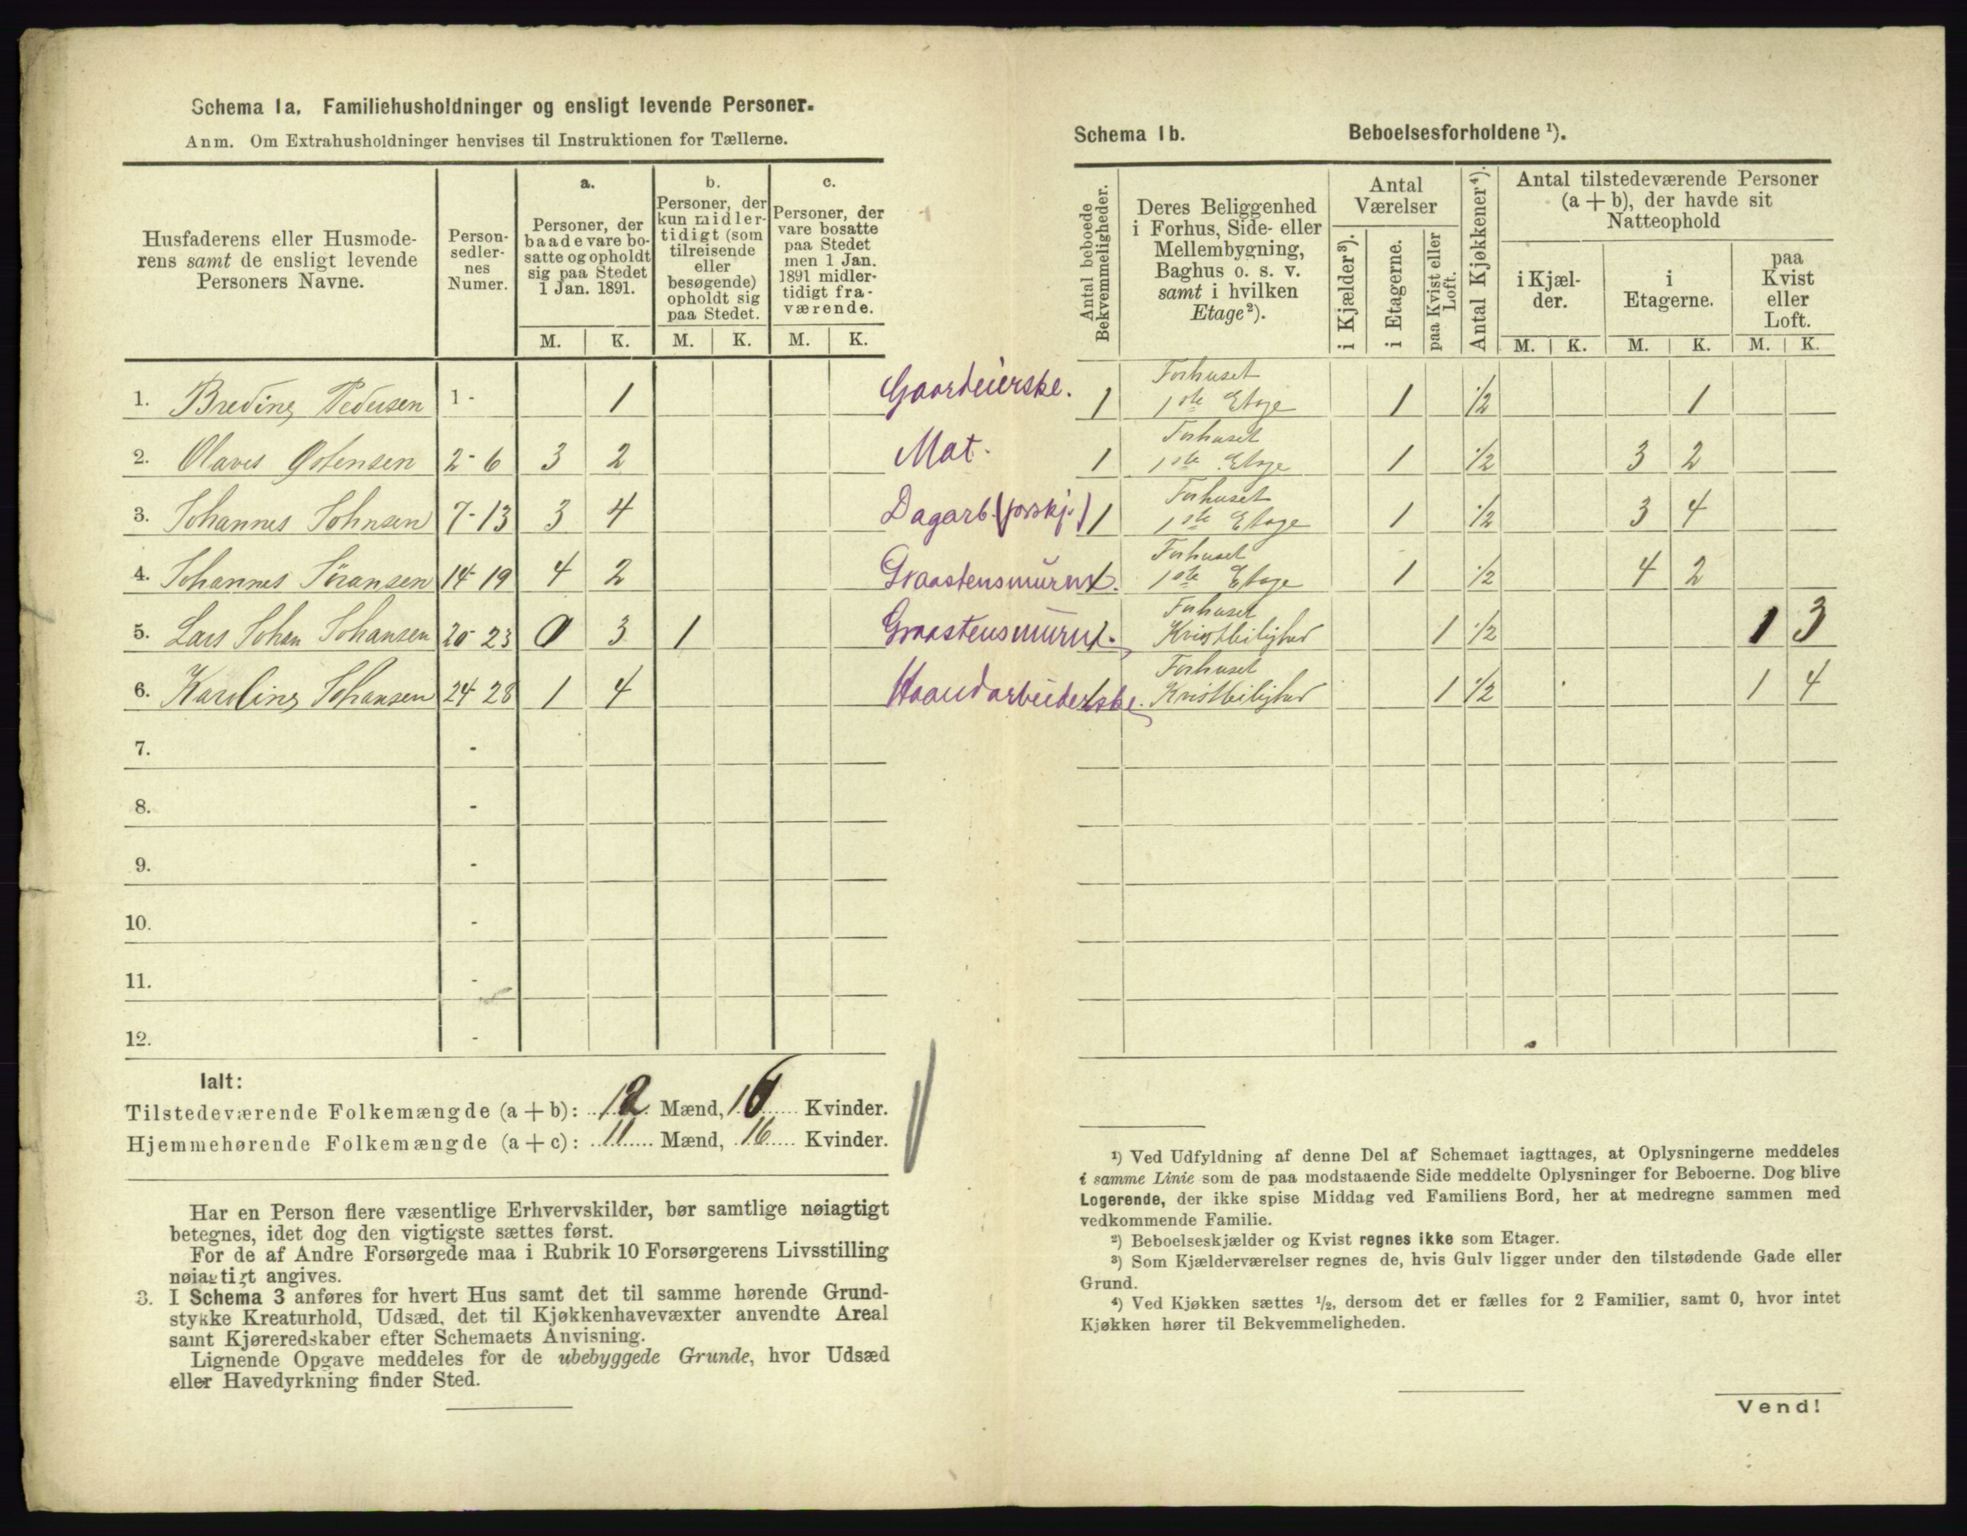 Schema 1a. Familiehusholdninger og ensligt levende Personer.
Anm. Om Extrahusholdninger henvises til Instruktionen for Tællerne.
Husfaderens eller Husmode-
rens samt de ensligt levende
Personers Navne.
Person-
sedler-
nes
Numer.
a.
Personer, der
baade vare bo-
satte og opholdt
sig paa Stedet
1 Jan. 1891.
b.
Personer, der
kun midler-
tidigt (som
tilreisende
eller
besøgende)
opholdt sig
paa Stedet.
c.
Personer, der
vare bosatte
paa Stedet
men 1 Jan.
1891 midler-
tidigt fra-
værende.
M. K. M. K. M. K.
1. Bredine Pedersen 1 - 1 Gaardeierske.
2. Olaves 2-6 3 2 Mat.
3. Johannes Johnsen 7-13 3 4 Dagarb. (forskj.)
4. Johannes Søransen 14-19 4 2 Graastensmurm.
5. Lars Johan Johansen 20-23 0 3 1 Graastensmurm.
6. Karoline Johansen 24-28 1 4 Haandarbeiderske.
7. -
8. -
9. -
10. -
11. -
12. -
Ialt:
Tilstedeværende Folkemængde (a + b): 12 Mænd, 16 Kvinder.
Hjemmehørende Folkemængde (a + c): 11 Mænd, 16 Kvinder.
Har en Person flere væsentlige Erhvervskilder, bør samtlige nøiagtigt
betegnes, idet dog den vigtigste sættes først.
For de af Andre Forsørgede maa i Rubrik 10 Forsørgerens Livsstilling
nøiagtigt angives.
3. I Schema 3 anføres for hvert Hus samt det til samme hørende Grund-
stykke Kreaturhold, Udsæd, det til Kjøkkenhavevæxter anvendte Areal
samt Kjøreredskaber efter Schemaets Anvisning.
Lignende Opgave meddeles for de ubebyggede Grunde, hvor Udsæd
eller Havedyrkning finder Sted.
Schema 1b. Beboelsesforholdene ¹).
Antal beboede
Bekvemmeligheder.
Deres Beliggenhed
i Forhus, Side- eller
Mellembygning,
Baghus o. s. v.
samt i hvilken
Etage²).
Antal
Værelser
i Kjælder³).
i Etagerne.
paa Kvist eller
Loft.
Antal Kjøkkener⁴).
Antal tilstedeværende Personer
(a + b), der havde sit
Natteophold
i Kjæl-
der.
i
Etagerne.
paa
Kvist
eller
Loft.
M. K. M. K. M. K.
1 Forhuset
1ste Etage 1 1/2 1
1 Forhuset
1ste Etage 1 1/2 3 2
1 Forhuset
1ste Etage 1 1/2 3 4
1 Forhuset
1ste Etage 1 1/2 4 2
1 Forhuset
Kvistleilighed 1 1/2 1 3
1 Forhuset
Kvistleilighed 1 1/2 1 4
¹) Ved Udfyldning af denne Del af Schemaet iagttages, at Oplysningerne meddeles
i samme Linie som de paa modstaaende Side meddelte Oplysninger for Beboerne. Dog blive
Logerende, der ikke spise Middag ved Familiens Bord, her at medregne sammen med
vedkommende Familie.
²) Beboelseskjælder og Kvist regnes ikke som Etager.
³) Som Kjælderværelser regnes de, hvis Gulv ligger under den tilstødende Gade eller
Grund.
⁴) Ved Kjøkken sættes ¹/₂, dersom det er fælles for 2 Familier, samt 0, hvor intet
Kjøkken hører til Bekvemmeligheden.
Vend!